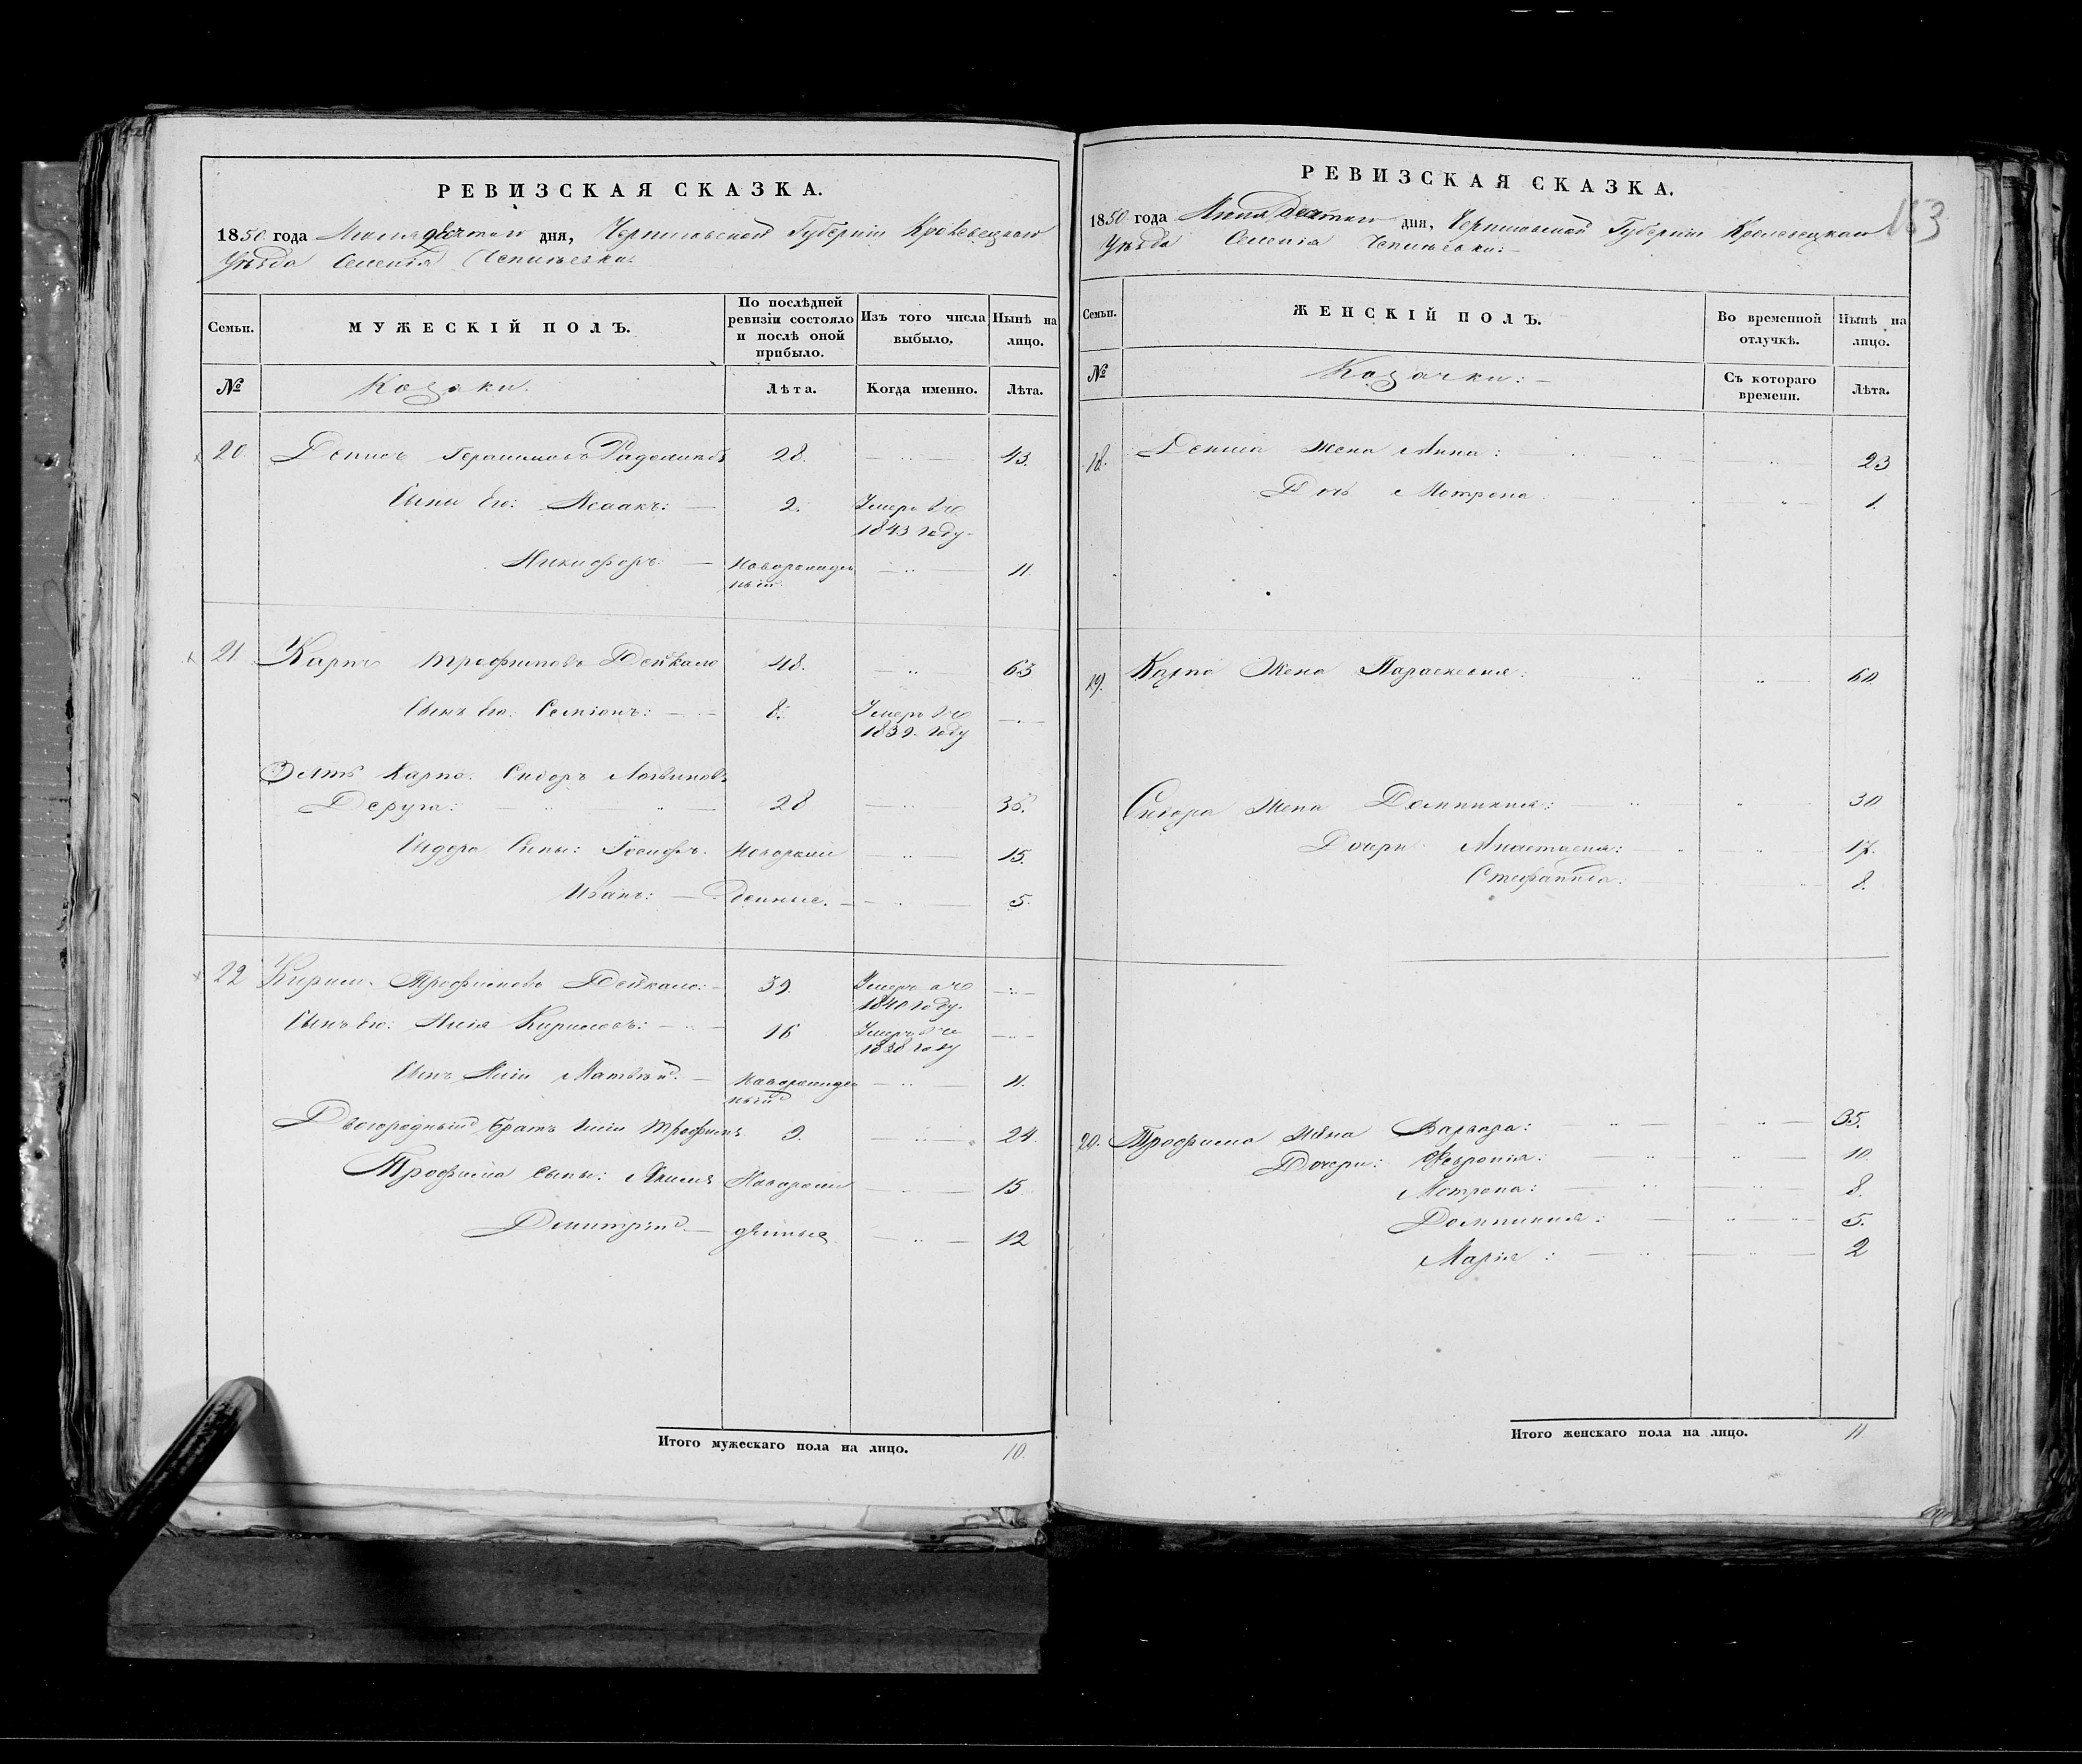 РЕВИЗСКАЯ СКАЗКА.
1850 года дня, Черниговской Губерніи Кролевецкаго
Уѣзда Селенія Чепиевки.
Семьи. МУЖЕСКІЙ ПОЛЪ. По послѣдней ревизіи состояло и послѣ оной прибыло. Изъ того числа выбыло. Нынѣ на лицо.
№ Козаки. Лѣта. Когда именно. Лѣта.
20 Денисъ Герасимовъ 28. 43.
Сыны его: Исаакъ: 2. Умеръ въ
1843 году
Никифоръ: Новорожден
ный 11.
21 Карпъ Трофимовъ Дейкало 48. 63
Сынъ его: Семіонъ: 8. Умеръ въ
1839. году
Зять Карпа. Сидоръ Логвиновъ
Деруга: 28 36.
Сидора Сыны: Іосифъ. Новорож 15.
Иванъ: денные. 5.
22 Кирило Трофимовъ Дейкало: 39. Умеръ въ
1840 году.
Сынъ его: Кириловъ: 16 Умеръ въ
1838 году
Сынъ Матвѣй. Новорожден
ный 11.
Двоюродный братъ Трофимъ 9. 24.
Трофима сыны: Акимъ Новорож 15
Дмитрій денные 12
Итого мужескаго пола на лицо. 10.
РЕВИЗСКАЯ СКАЗКА.
153
1850 года дня, Черниговской Губерніи Кролевецкаго
Уѣзда Селенія Чепиевки:
Семьи. ЖЕНСКІЙ ПОЛЪ. Во временной отлучкѣ. Нынѣ на лицо.
№ Козачки: Съ котораго времени. Лѣта.
18. Дениса жена Анна: 23
Дочь Мотрона 1.
19. Карпа Жена Параскевия: 60
Сидора Жена Домникия: 30
Дочри Анастасия: 17.
Стефанида: 8.
20. Трофима Жена Варвара: 35.
Дочери: Февронія: 10.
Мотрона: 8.
Домникия: 5.
Марія: 2
Итого женскаго пола на лицо. 11